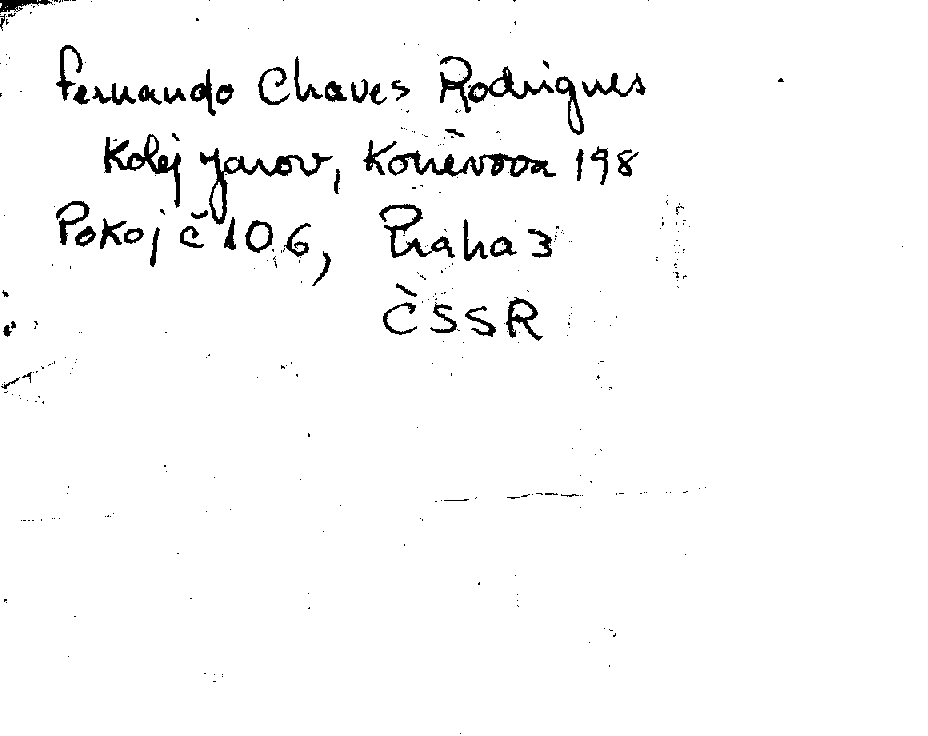 Fernando Chaves Rodrigues
Kolej Jarov, Koněvova 198
Pokoj č 106, Praha 3
ČSSR